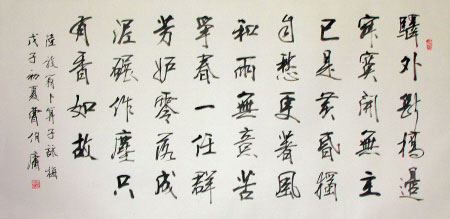 驛外斷橋邊
寂寞開無主
已是黃昏獨
自愁更著風
和雨無意苦
爭春一任群
芳妒零落成
泥碾作塵只
有香如故
陸放翁卜算子詠梅
戊子初夏曹伯庸